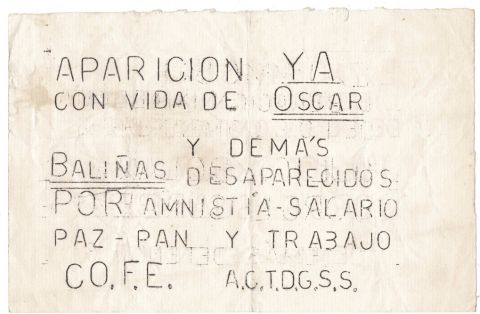 APARICION YA
CON VIDA DE OSCAR
Y DEMA'S
BALIÑAS DESAPARECIDOS
POR AMNISTIA-SALARIO
PAZ-PAN Y TRABAJO
CO.F.E. A.C.T.D.G.S.S.